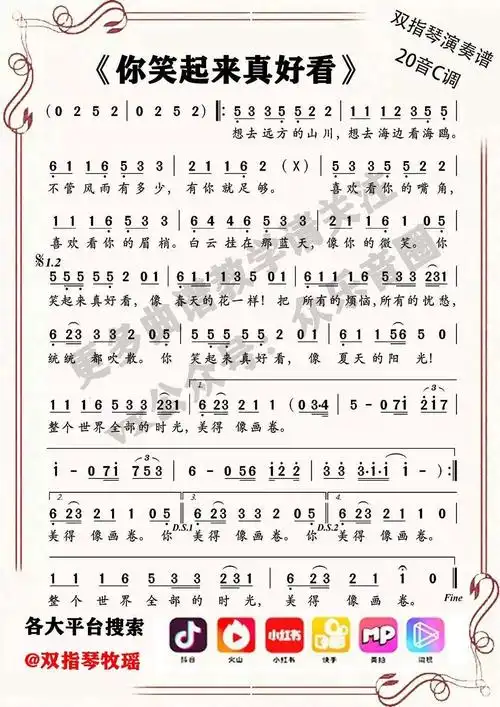 双指琴演奏谱
20音C调
《你笑起来真好看》
(0 2 5 2 | 0 2 5 2) |: 5 3 3 5 5 2 2 | 1 1 1 2 3 5 5 |
想去远方的山川，想去海边看海鸥。
6 1 1 6 5 3 3 | 2 1 1 6 2 (X) | 5 3 3 5 5 2 2 |
不管风雨有多少，有你就足够。 喜欢看你的嘴角，
1 1 1 6 5 3 3 | 4 4 4 6 5 3 3 | 2 1 6 1 0 5 |
喜欢看你的眉梢。白云挂在那蓝天，像你的微笑。你
𝄋1.2
5 5 5 5 5 2 0 1 | 6 1 1 1 3 5 | 6 1 1 6 5 3 3 2 3 1 |
笑起来真好看，像 春天的花一样！把 所有的烦恼，所有的忧愁，
6 2 3 3 2 2 0 5 | 5 5 5 5 5 2 0 1 | 6 1 1 6 5 0 |
统统 都吹散。你 笑起来真好看，像 夏天的阳 光！
1 1 1 6 5 3 3 2 3 1 | 1. 6 2 3 2 1 1 (0 3·4 | 5 - 0 7 i 2 i 7 |
整个世界全部的时光，美得 像画卷。
i - 0 7 i 7 5 3 | 6 - 0 5 6 i 2 2 | 3 3 3·i·i | i - ) :|
2. 6 2 3 2 1 1 0 5 | 3. 6 2 3 2 1 1 0 5 | 4. 6 2 3 2 1 1 0 |
美得 像画卷。你 D.S.1 美得 像画卷。你 D.S.2 美得 像画卷。
1 1 1 6 5 3 3 2 3 1 | 6 2 3 2 1 i 0
整个世界全部的时光，美得 像画卷。 Fine
各大平台搜索
@双指琴牧瑶
抖音 火山 小红书 快手 美拍
小红书
MP
更多曲谱教学请关注
公众号：众乐音圈